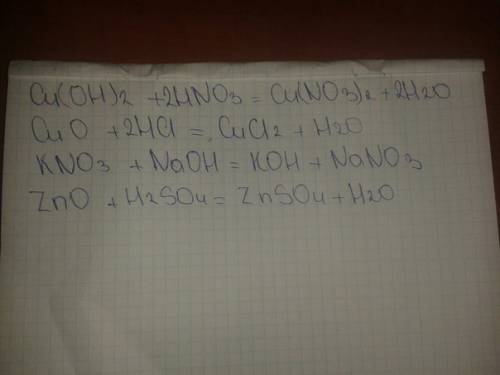 Cu(OH)2 +2HNO3 = Cu(NO3)2 + 2H2O
CuO + 2HCl = CuCl2 + H2O
KNO3 + NaOH = KOH + NaNO3
ZnO + H2SO4 = ZnSO4 + H2O